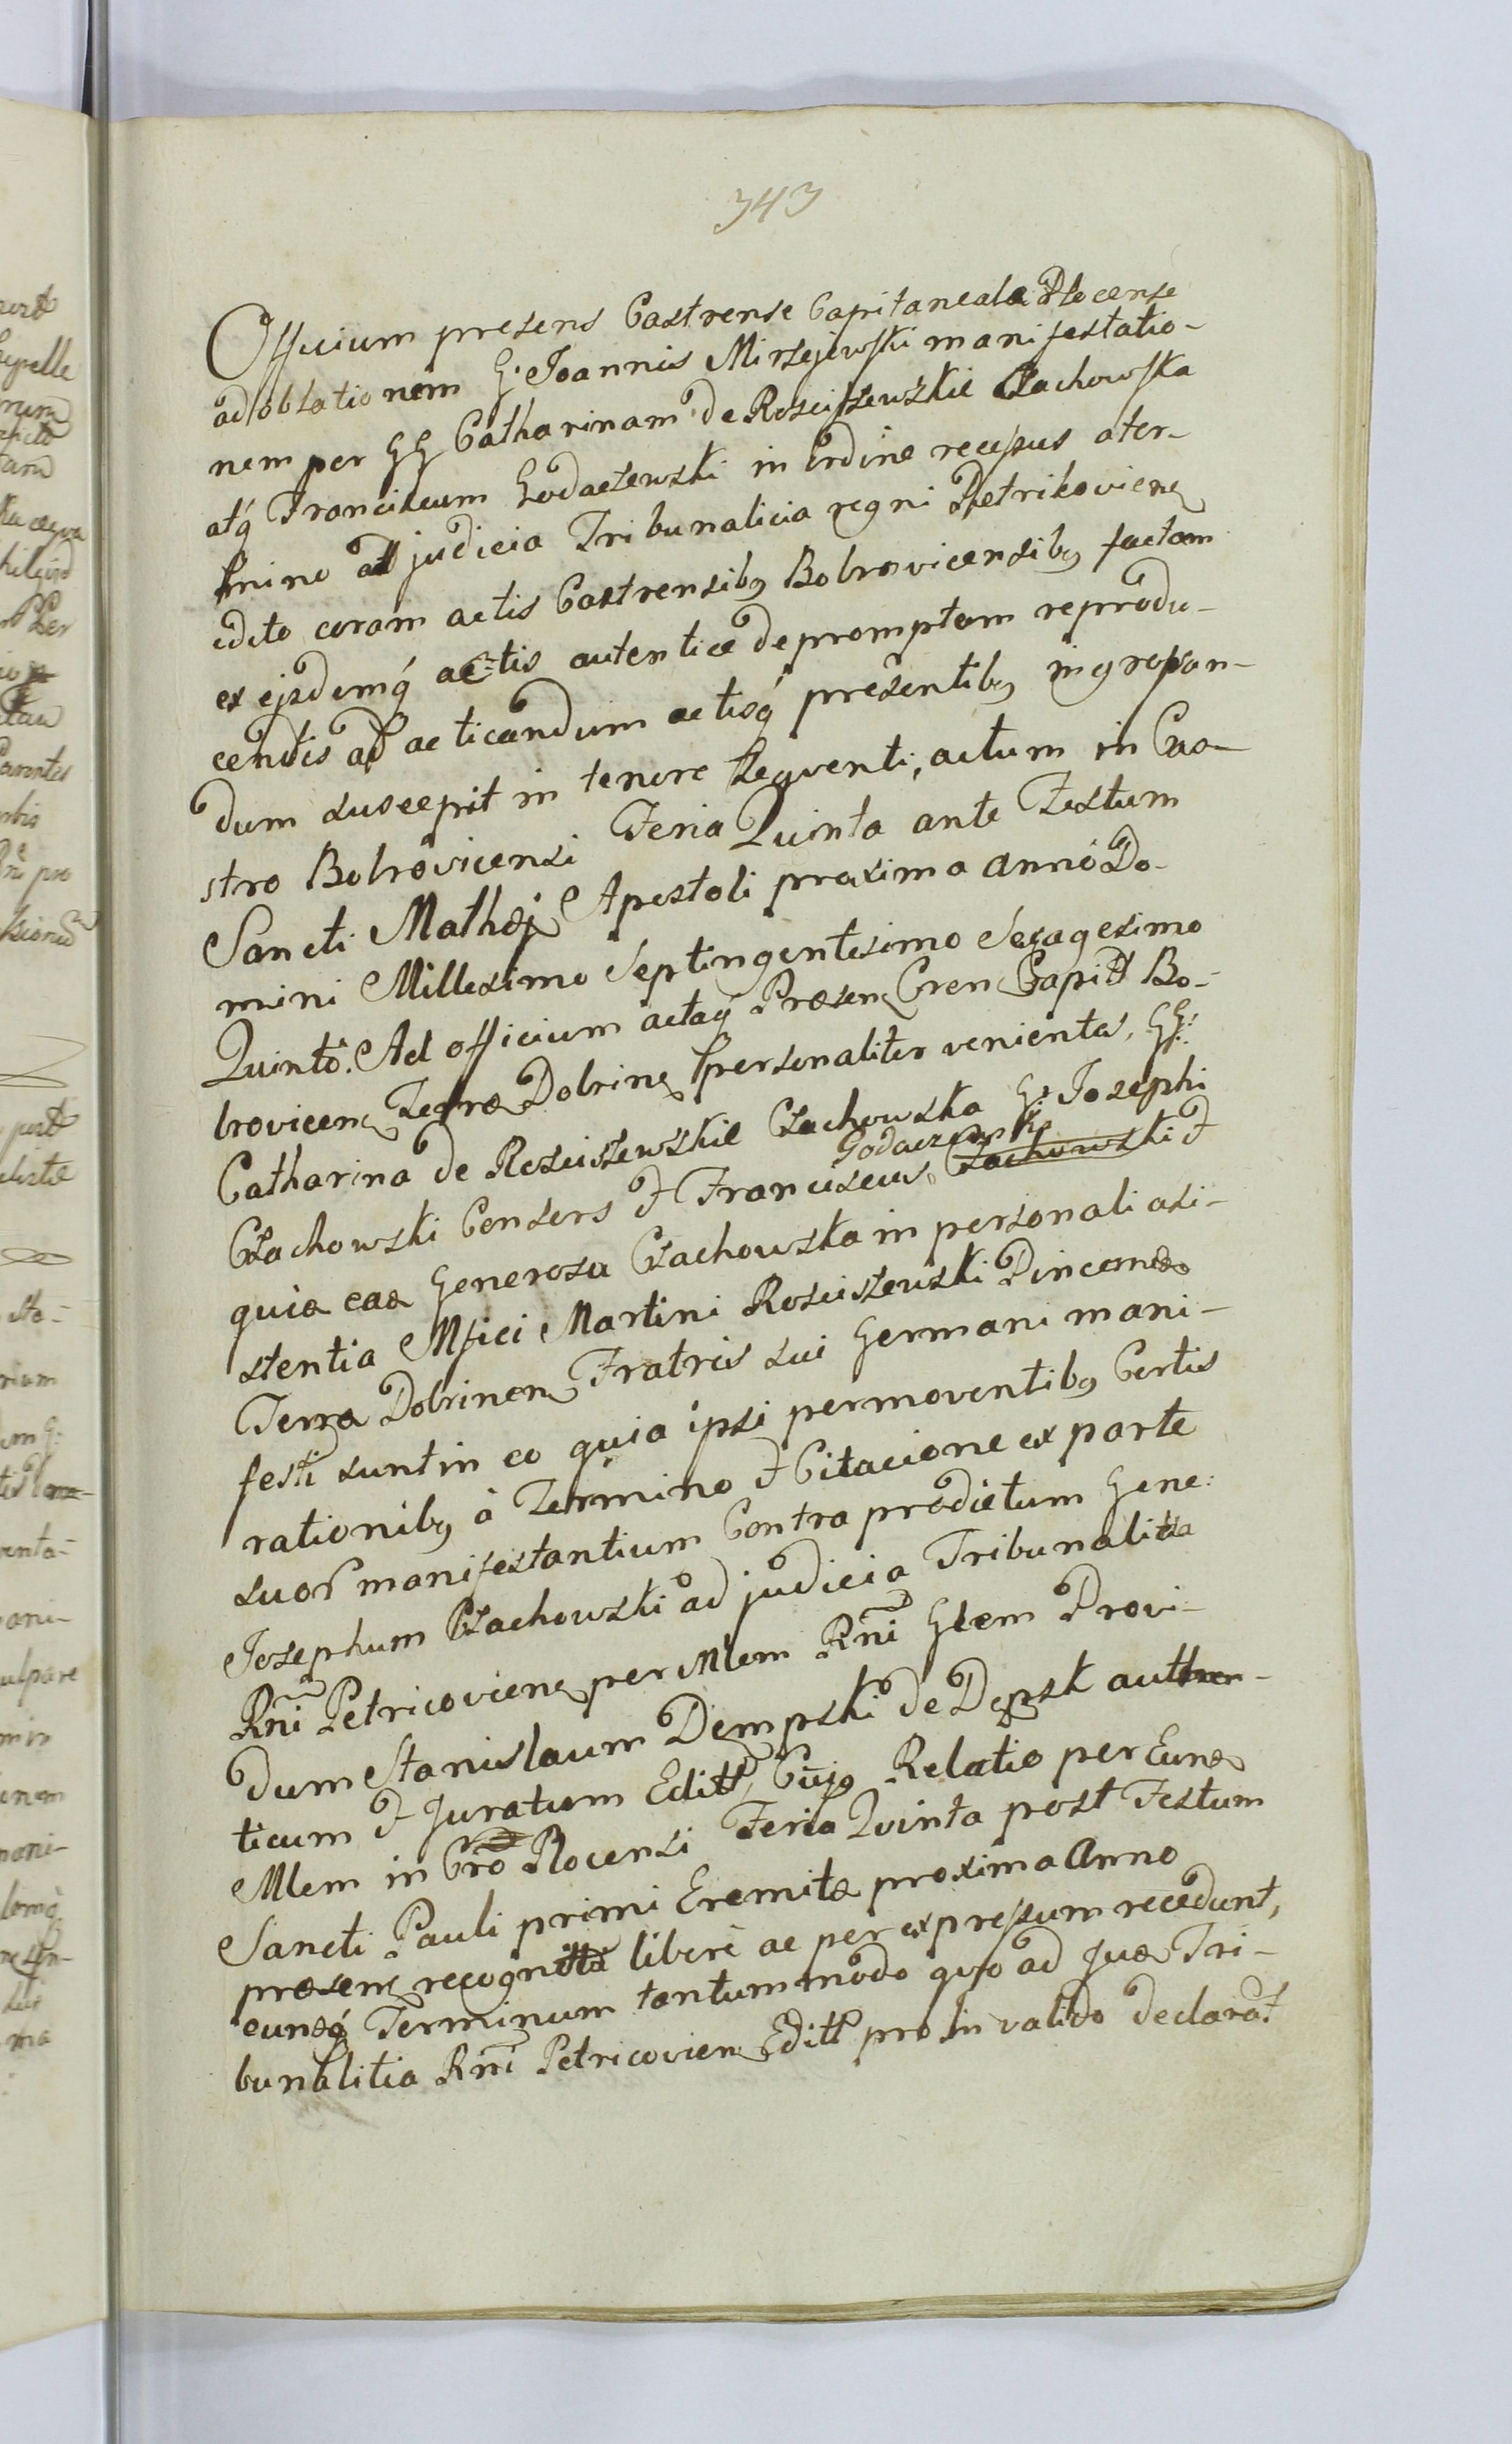 343
Officium presens Castrense Capitaneale Plocense
ad oblationem G. Joannis Mirzejewski manifestatio-
nem per GG Catharinam de Rosciszewskie Czachowska
atq́ Franciscum Godaczewski in ordine recessus a ter-
mino ad judicia Tribunalicia regni Petrikoviens
edito coram actis Castrensibq Bobrovicensibq factam
ex ejsdemq́ actis autentice depromptam reprodu-
cendis ad acticandum actisq́ presentibq ingrossan-
dum suscepit in tenore seqventi, actum in Cas-
stro Bobrovicensi Feria Quinta ante Festum
Sancti Mathej Apostoli proxima anno Do-
mini Millesimo Septingentesimo Sexagesimo
Quinto. Ad officium actaq́ Præsen Cren Capit Bo-
brovicen Terræ Dobrinen personaliter venientes, GG:
Catharina de Rosciszewskie Czachowska G: Josephi
Godaczewski
Czachowski Consors & Franciscus Czachowski &
quia eaa Generosa Czachowska in personali asi-
stentia Mfici Martini Rosciszewski Pincernæ
Terræ Dobrinen Fratris sui Germani mani-
festi sunt in eo quia ipsi permoventibq Certis
rationibq à Termino & Citacione ex parte
suor manifestantium Contra prædictum Gene:
Josephum Czachowski ad judicia Tribunalitia
Rni Petricoviens per Mlem Rni Glem Provi-
dum Stanislaum Dempski de Dępsk authen-
ticum & Juratum Editt, Cujq Relatio per Eund
Mlem in Cro Plocensi Feria Quinta post Festum
Sancti Pauli primi Eremitæ proxima Anno
præsen recognitta liberè ac per expressum recedunt,
eundq́ Terminum tantummodo qvo ad Juæ Tri-
bunalitia Rni Petricovien Editt pro invalido declarat